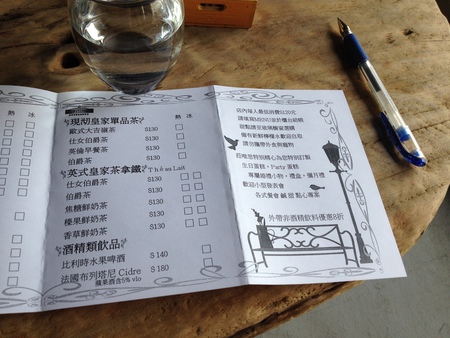 熱 冰
現沏皇家單品茶 熱 冰
歐式大吉嶺茶 $130
仕女伯爵茶 $130
英倫早餐茶 $130
伯爵茶 $130
英式皇家茶拿鐵 Thé au Lait
仕女伯爵茶 $130
伯爵茶 $130
焦糖鮮奶茶 $130
榛果鮮奶茶 $130
香草鮮奶茶 $130
酒精類飲品
比利時水果啤酒 $140
法國布列塔尼 Cidre $180
蘋果酒含5% vlo
店內每人最低消費$120元
請填寫MENU並於櫃台結帳
甜點請至玻璃櫃選購
備有新鮮檸檬水歡迎自取
請勿攜帶外食與寵物
特別精心為您特別訂製
生日蛋糕、Party 蛋糕
專屬婚禮小物、禮盒、彌月禮
歡迎小型發表會
各式餐會 鹹 甜 點心專案
外帶非酒精飲料優惠8折